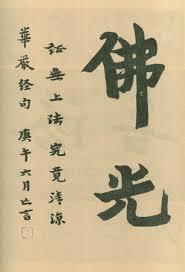 佛光
証無上法究竟清涼
華嚴经句庚午六月亡言